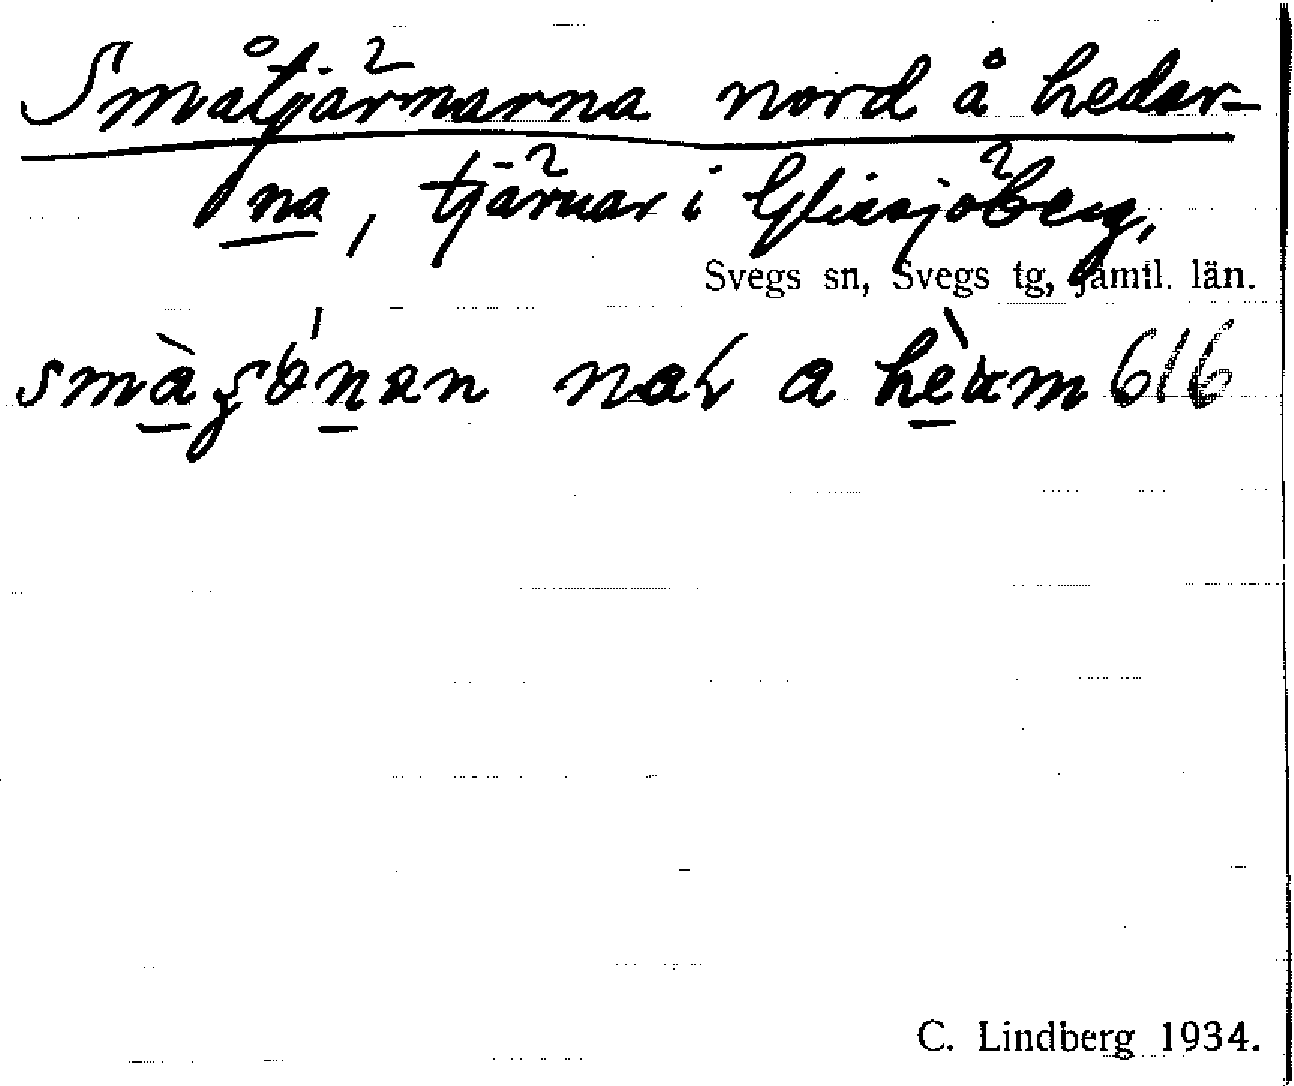 Småtjärnarna nord å hedar-
na, tjärnar i Glissjöberg,
Svegs sn, Svegs tg, Jämtl. län.
a 616
C. Lindberg 1934.